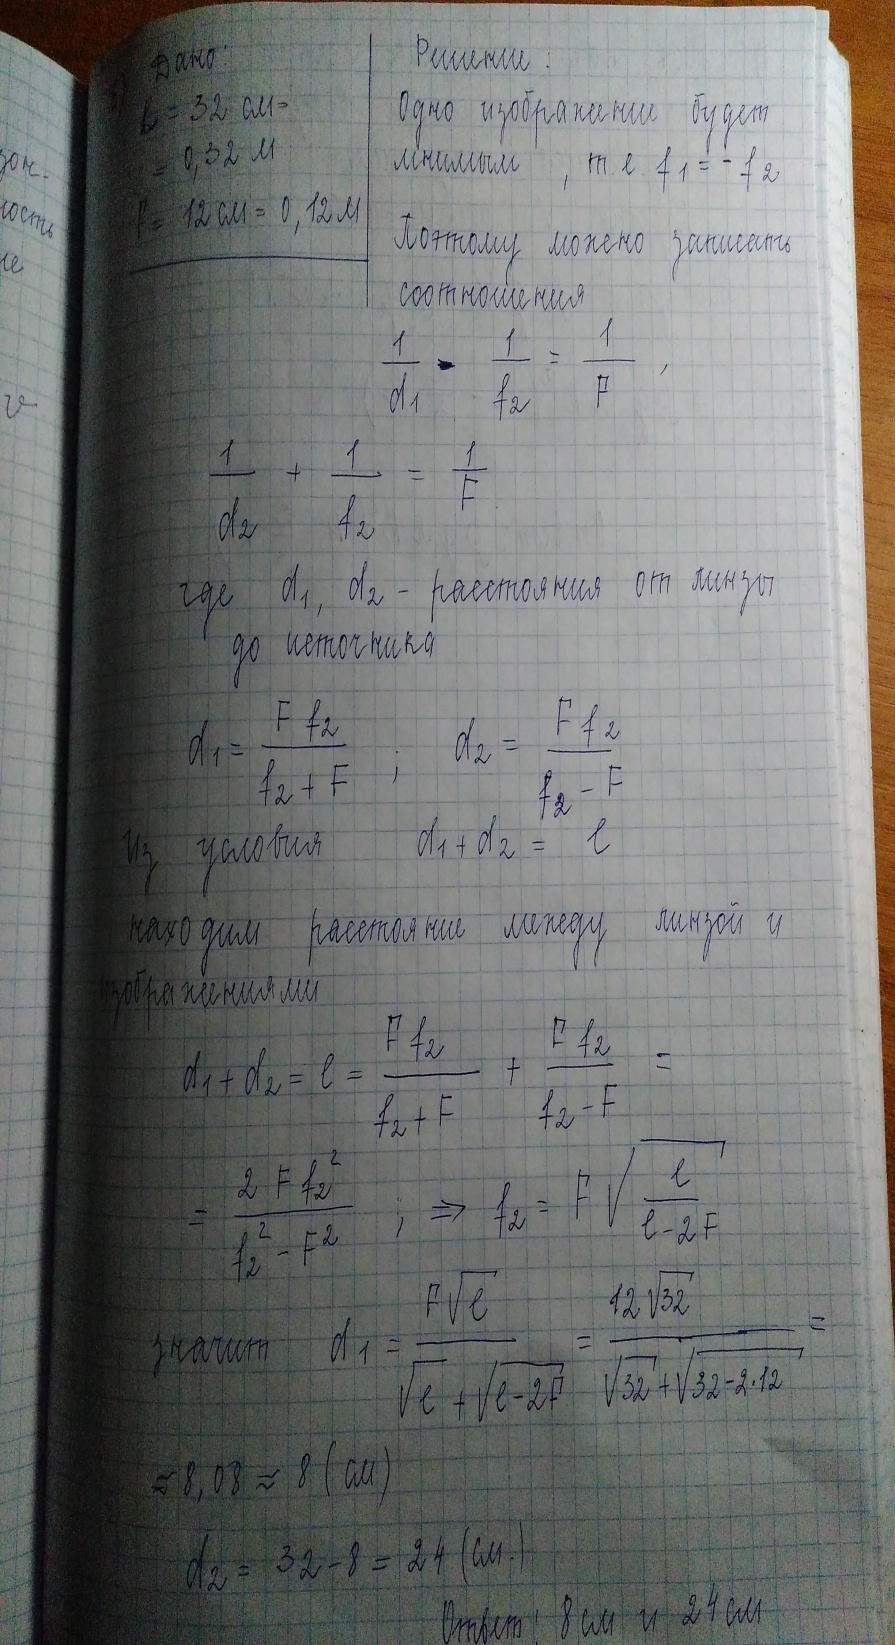 Дано:
L = 32 см =
= 0,32 м
F = 12 см = 0,12 м
Решение:
Одно изображение будет
мнимым, т е f₁ = - f₂
Поэтому можно записать
соотношения
1/d₁ - 1/f₂ = 1/F ,
1/d₂ + 1/f₂ = 1/F
где d₁, d₂ - расстояния от линзы
до источника
d₁ = F f₂ / (f₂ + F) ; d₂ = F f₂ / (f₂ - F)
Из условия d₁ + d₂ = l
находим расстояние между линзой и
изображениями
d₁ + d₂ = l = F f₂ / (f₂ + F) + F f₂ / (f₂ - F) =
= 2 F f₂² / (f₂² - F²) ; ⇒ f₂ = F √(l / (l - 2F))
значит d₁ = F√l / (√l + √(l - 2F)) = 12√32 / (√32 + √(32 - 2·12)) =
≈ 8,08 ≈ 8 (см)
d₂ = 32 - 8 = 24 (см.)
Ответ: 8 см и 24 см